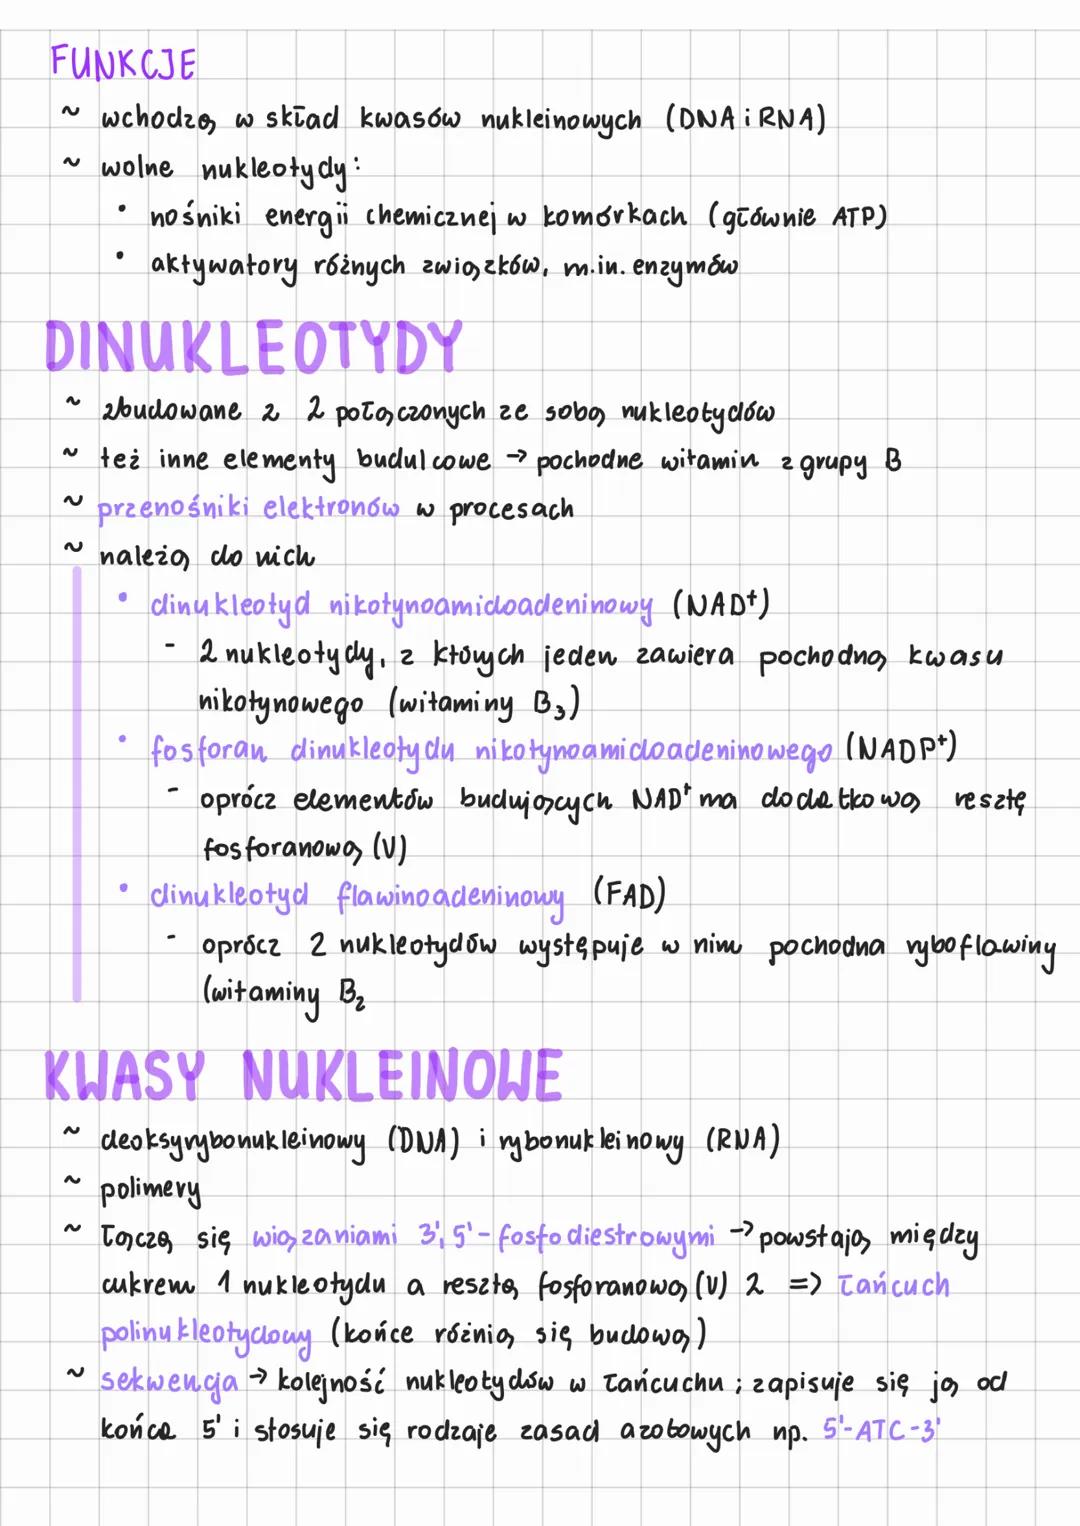 FUNKCJE
~ wchodzą w skład kwasów nukleinowych (DNA i RNA)
~ wolne nukleotydy:
• nośniki energii chemicznej w komórkach (głównie ATP)
• aktywatory różnych związków, m.in. enzymów
DINUKLEOTYDY
~ zbudowane z 2 połączonych ze sobą nukleotydów
~ też inne elementy budulcowe → pochodne witamin z grupy B
~ przenośniki elektronów w procesach
~ należą do nich
• dinukleotyd nikotynoamidoadeninowy (NAD⁺)
- 2 nukleotydy, z których jeden zawiera pochodną kwasu
nikotynowego (witaminy B₃)
• fosforan dinukleotydu nikotynoamidoadeninowego (NADP⁺)
- oprócz elementów budujących NAD⁺ ma dodatkową resztę
fosforanową (V)
• dinukleotyd flawinoadeninowy (FAD)
- oprócz 2 nukleotydów występuje w nim pochodna ryboflawiny
(witaminy B₂
KWASY NUKLEINOWE
~ deoksyrybonukleinowy (DNA) i rybonukleinowy (RNA)
~ polimery
~ łączą się wiązaniami 3',5'-fosfodiestrowymi → powstają między
cukrem 1 nukleotydu a resztą fosforanową (V) 2 => łańcuch
polinukleotydowy (końce różnią się budową)
~ sekwencja → kolejność nukleotydów w łańcuchu; zapisuje się ją od
końca 5' i stosuje się rodzaje zasad azotowych np. 5'-ATC-3'